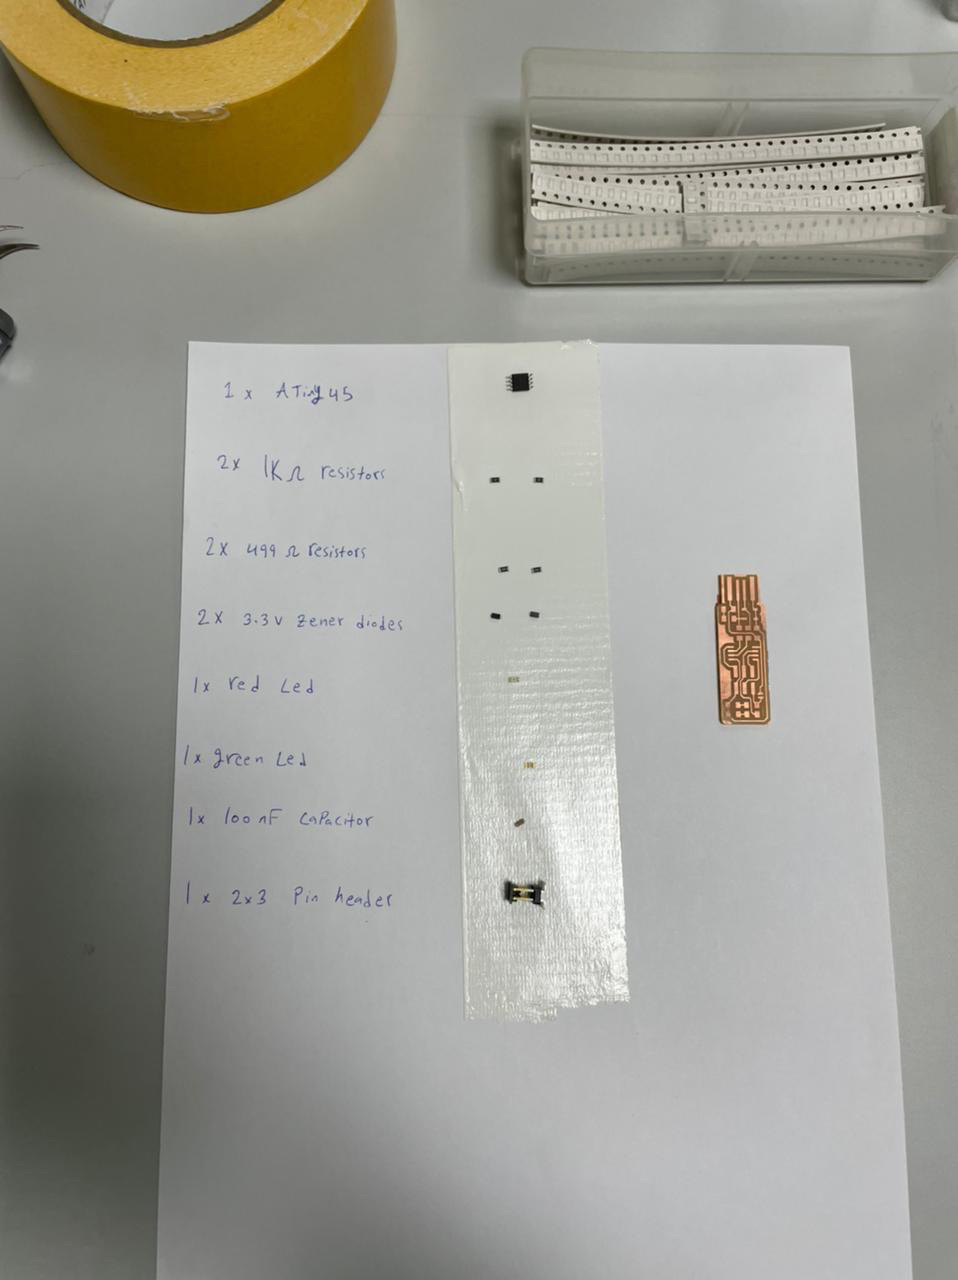 1 x ATiny45
2x 1KΩ resistors
2x 499 Ω resistors
2x 3.3v Zener diodes
1x red Led
1x green Led
1x 100nF CaPacitor
1x 2x3 Pin header